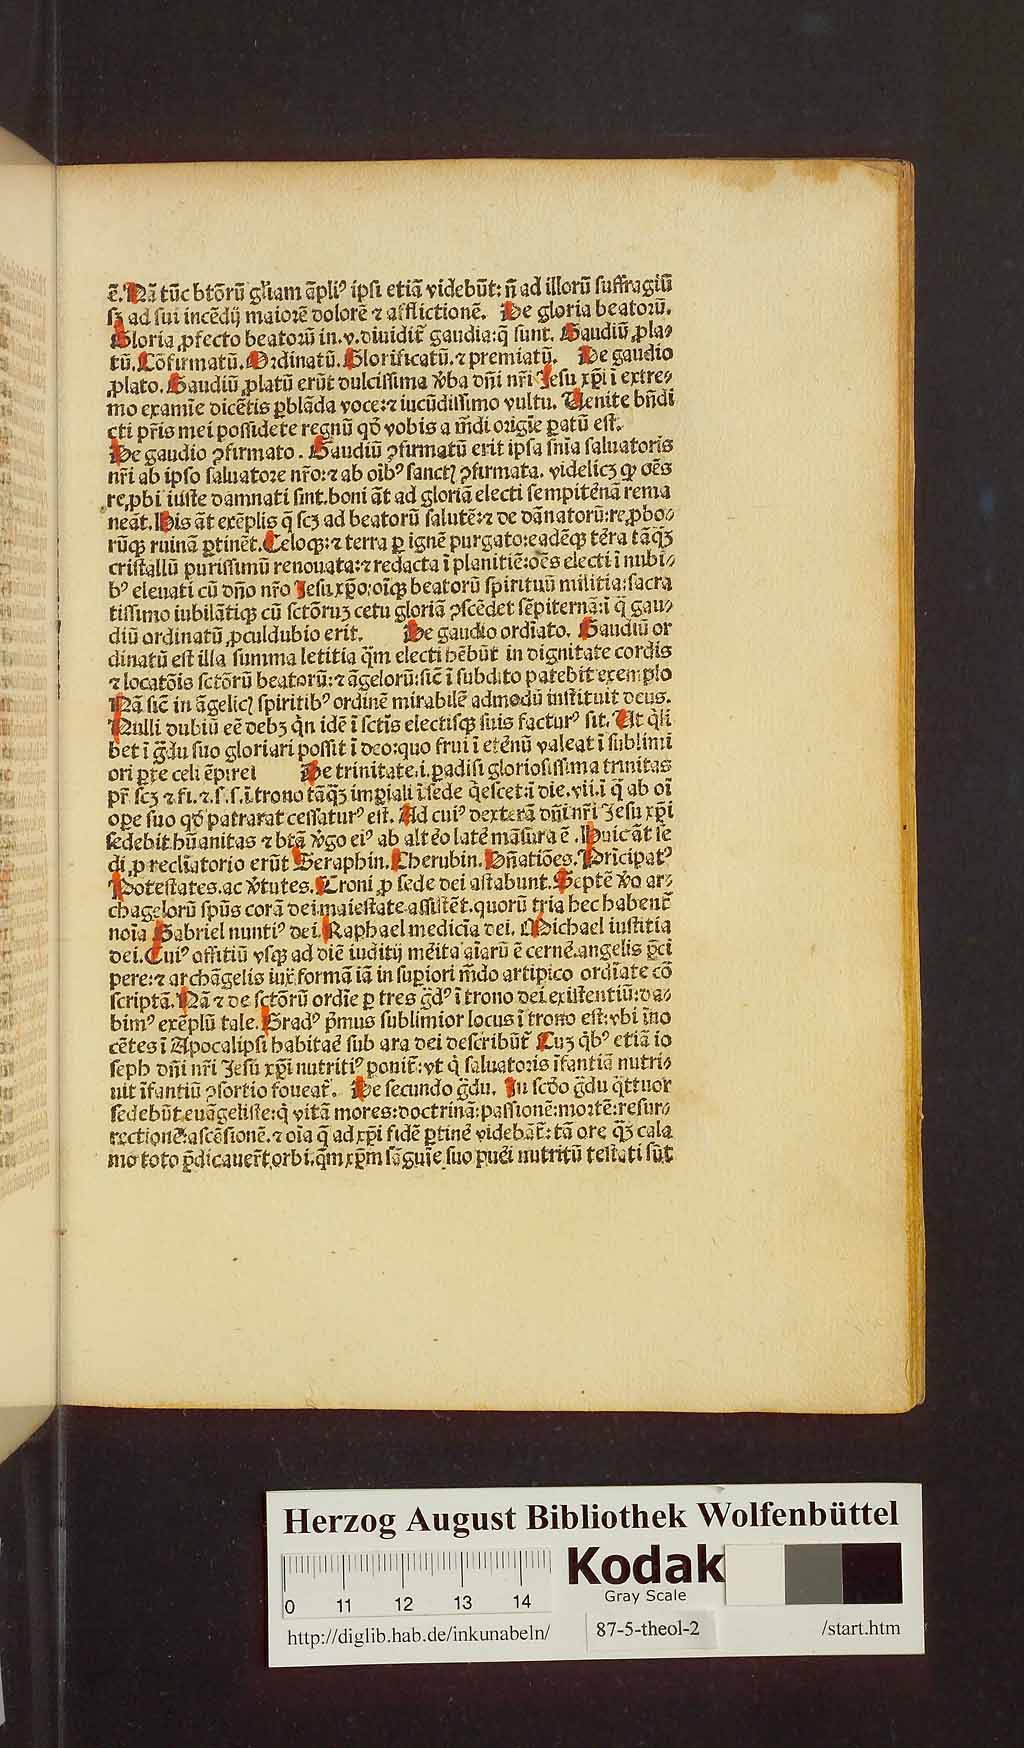 ē. Nā tūc btōrū gl'iam āpliꝰ ipsi etiā videbūt: n̄ ad illorū suffragiū
sꝫ ad sui incēdij maiorē dolorē ⁊ afflictionē. De gloria beatorū.
Gloria ꝓfecto beatorū in .v. diuidit̄ gaudia: q̄ sunt. Gaudiū ꝓla⸗
tū. Cōfirmatū. Ordinatū. Glorificatū. ⁊ premiatū. De gaudio
ꝓlato. Gaudiū ꝓlatū erūt dulcissima v̆ba dn̄i nr̄i Jesu xp̄i ī extre⸗
mo examīe dicētis ꝑblāda voce: ⁊ iucūdissimo vultu. Uenite bn̄di
cti pr̄is mei possidete regnū qd̄ vobis a m̄di origīe ꝑatū est.
De gaudio ꝯfirmato. Gaudiū ꝯfirmatū erit ipsa sn̄ia saluatoris
nr̄i ab ipso saluatore nr̄o: ⁊ ab oībꝰ sanctꝭ ꝯfirmata. videlicꝫ ꝙ oēs
reꝓbi iuste damnati sint. boni āt ad gloriā electi sempitėnā rema
neāt. His āt exēplis q̄ scꝫ ad beatorū salutē: ⁊ de dānatorū: reꝓbo⸗
rūqꝫ ruinā ꝑtinēt. Celoqꝫ: ⁊ terra ꝑ ignē purgato: eadēqꝫ tėra tāqꝫ
cristallū purissimū renouata: ⁊ redacta ī planitiē: oēs electi ī nubi⸗
bꝰ eleuati cū dn̄o nr̄o Jesu xp̄o: oīqꝫ beatorū spirituū militia: sacra
tissimo iubilātiqꝫ cū sctōruꝫ cetu gloriā ꝯscēdet sēpiternā: ī q̄ gau⸗
diū ordinatū ꝓculdubio erit. De gaudio ordīato. Gaudiū or
dinatū est illa summa letitia q̄m electi hēbūt in dignitate cordis
⁊ locatōis sctōrū beatorū: ⁊ āgelorū: sic̄ ī subdito patebit exemplo
Nā sic̄ in āgelicꝭ spiritibꝰ ordinē mirabilē admodū instituit deus.
Nulli dubiū eē debꝫ qn̄ idē ī sctīs electisqꝫ suis facturꝰ sit. Ut ql'i
bet ī g̈du suo gloriari possit ī deo: quo frui ī etėnū valeat ī sublimi
ori ꝑte celi ēpirei De trinitate .i. ꝑadisi gloriosissima trinitas
pr̄ scꝫ ⁊ fi. ⁊ .s.s. ī trono tāqꝫ imꝑiali ī sede q̇escet: ī die .vii. ī q̄ ab oī
oꝑe suo qd̄ patrarat cessaturꝰ est. Ad cuiꝰ dexterā dn̄i nr̄i Jesu xp̄i
sedebit hūanitas ⁊ btā v̆go eiꝰ ab altėo latė māsura ē. Huic āt se
di ꝓ reclīatorio erūt Seraphin. Cherubin. Dn̄atiōes. Pricipatꝰ
Potestates. ac v̆tutes. Troni ꝓ sede dei astabunt. Septē v̆o ar⸗
chagelorū spūs corā dei maiestate assistēt. quorū tria hec habent̄
noīa Gabriel nuntiꝰ dei. Raphael medicīa dei. Michael iustitia
dei. Cuiꝰ offitiū vsqꝫ ad diē iuditij mėita aīarū ē cernė. angelis p̄ci
pere: ⁊ archāgelis iux̄ formā iā in suꝑiori m̄do artipico ordīate cō
scriptā. Nā ⁊ de sctōrū ordīe ꝑ tres g̈dꝰ ī trono dei existentiū: da⸗
bimꝰ exēplū tale. Gradꝰ p̄mus sublimior locus ī trono est: vbi īno
cētes ī Apocalipsi habitaė sub ara dei describūt̄ Cuꝫ q̇bꝰ etiā io
seph dn̄i nr̄i Jesu xp̄i nutritiꝰ ponit̄: vt q̇ saluatoris īfantiā nutri⸗
uit īfantiū ꝯsortio foueat̄. De secundo g̈du. In scd̄o g̈du q̈ttuor
sedebūt euāgeliste: q̇ vitā mores: doctrinā: passionē: mortē: resur⸗
rectionē: ascēsionē. ⁊ oīa q̄ ad xp̄i fidē ꝑtinė videbāt̄: tā ore q̈ꝫ cala
mo toto p̄dicauer̄t orbi. q̄m xp̄m sāguīe suo puėi nutritū testati sūt
Herzog August Bibliothek Wolfenbüttel
Kodak
Gray Scale
0 11 12 13 14
http://diglib.hab.de/inkunabeln/ 87-5-theol-2 /start.htm